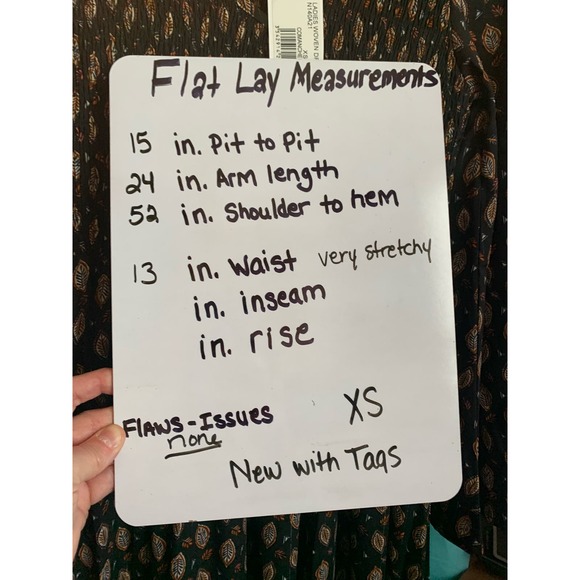 LADIES WOVEN DR
N14GA21
XS
COMANCHE
Flat Lay Measurements
15 in. Pit to Pit
24 in. Arm length
52 in. Shoulder to hem
13 in. waist very stretchy
in. inseam
in. rise
Flaws - Issues
none
XS
New with Tags